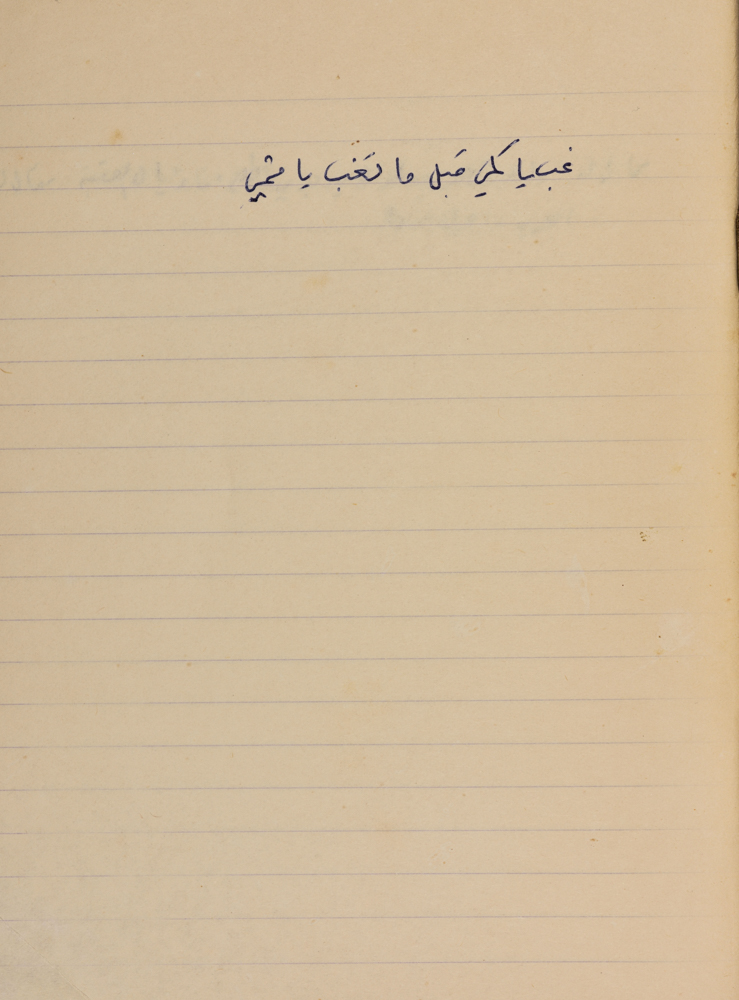 غب يا كمي قبل ما تَغب يا فمي